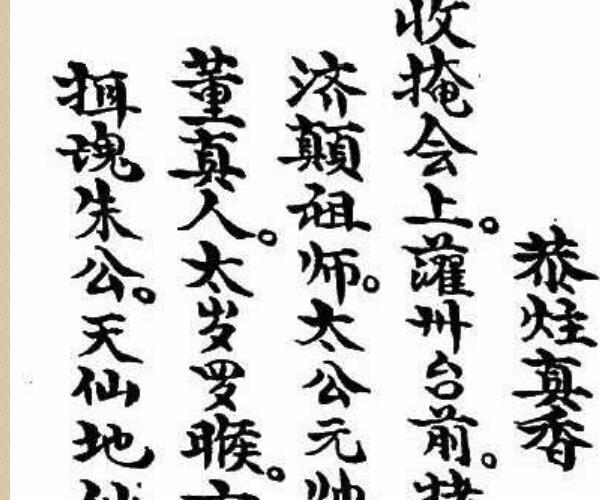 恭炷真香
收掩会上。灌州台前。
济颠祖师。太公元帅
董真人。太岁罗睺。
揖魂朱公。天仙地